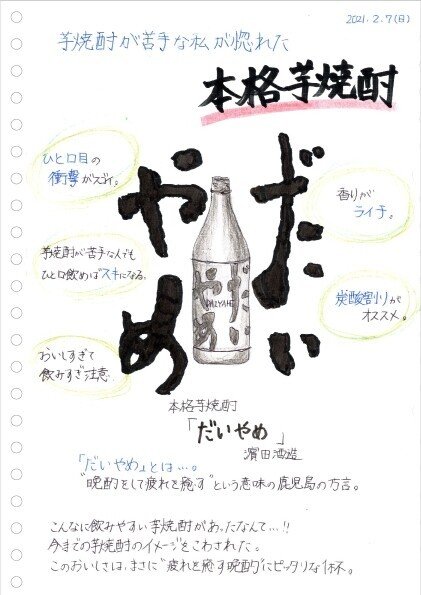 2021.2.7(日)
芋焼酎が苦手な私が惚れた
本格芋焼酎
だいやめ
ひと口目の
衝撃がスゴイ。
芋焼酎が苦手な人でも
ひと口飲めばスキになる。
おいしすぎて
飲みすぎ注意。
香りが
ライチ。
炭酸割りが
オススメ。
だいやめ
DAIYAME
本格芋焼酎
「だいやめ」
濵田酒造
「だいやめ」とは…。
"晩酌をして疲れを癒す"という意味の鹿児島の方言。
こんなに飲みやすい芋焼酎があったなんて…!!
今までの芋焼酎のイメージをこわされた。
このおいしさは、まさに"疲れを癒す晩酌"にピッタリな1杯。